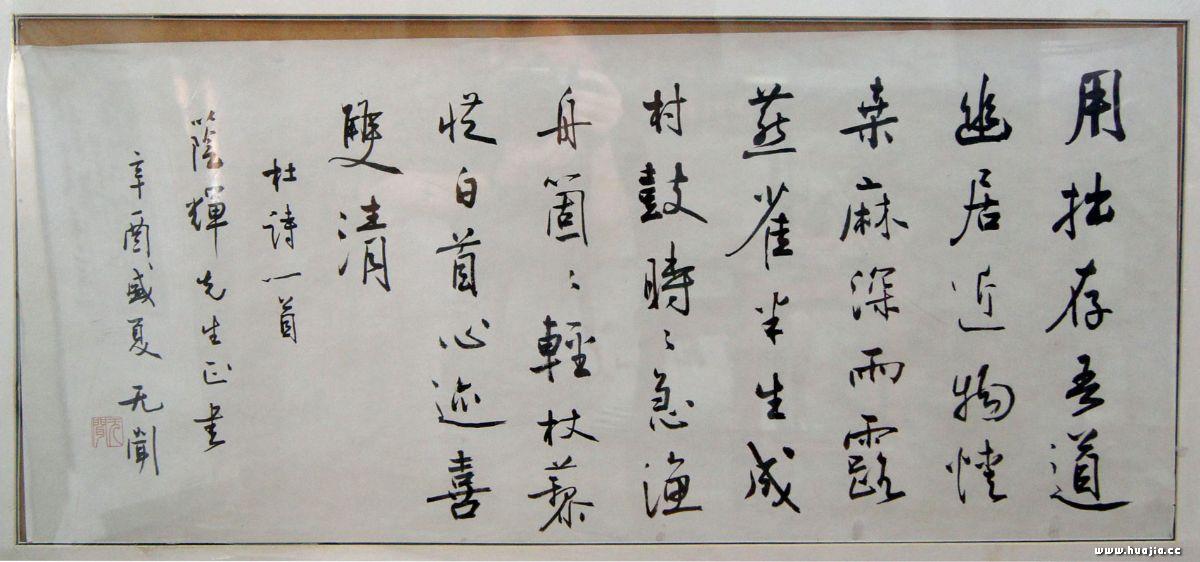 用拙存吾道
幽居近物情
桒麻深雨露
燕雀半生成
村鼓時〻急漁
舟箇〻輕杖藜
從白首心迹喜
雙清
杜詩一首
蔭輝先生正書
辛酉盛夏 无聞
www.huajia.cc